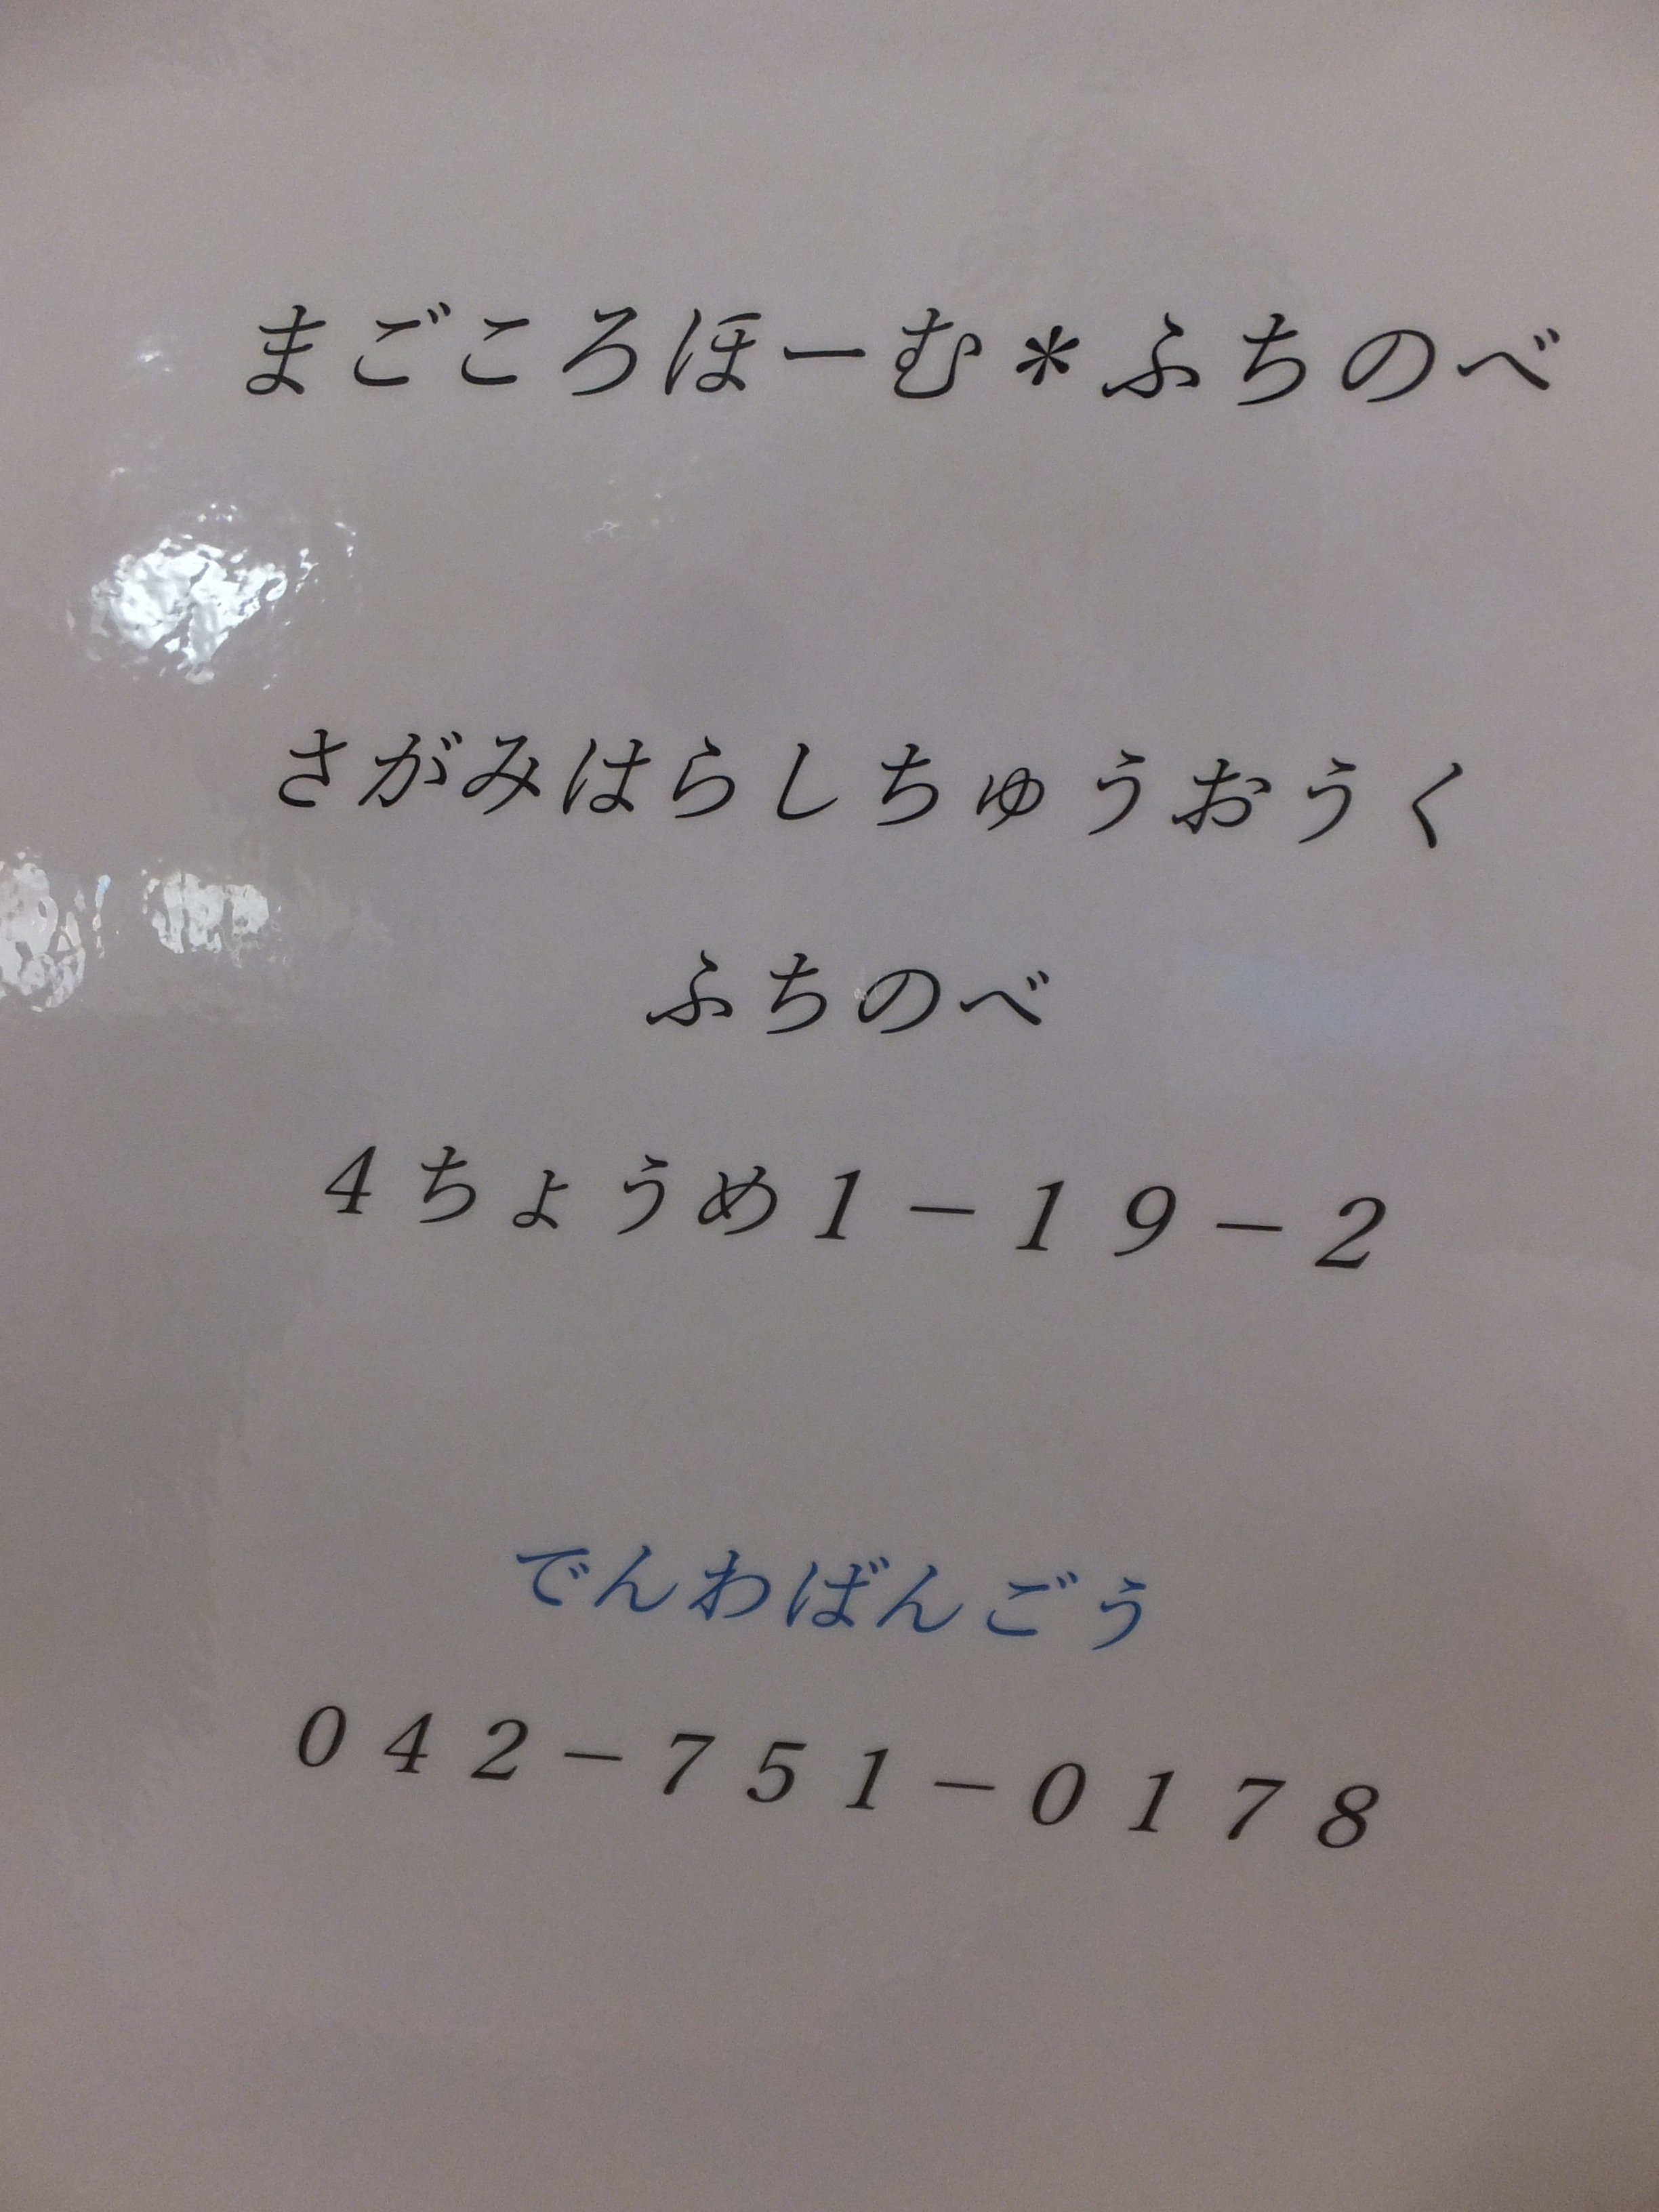 まごころほーむ＊ふちのべ
さがみはらしちゅうおうく
ふちのべ
４ちょうめ１－１９－２
でんわばんごう
０４２－７５１－０１７８